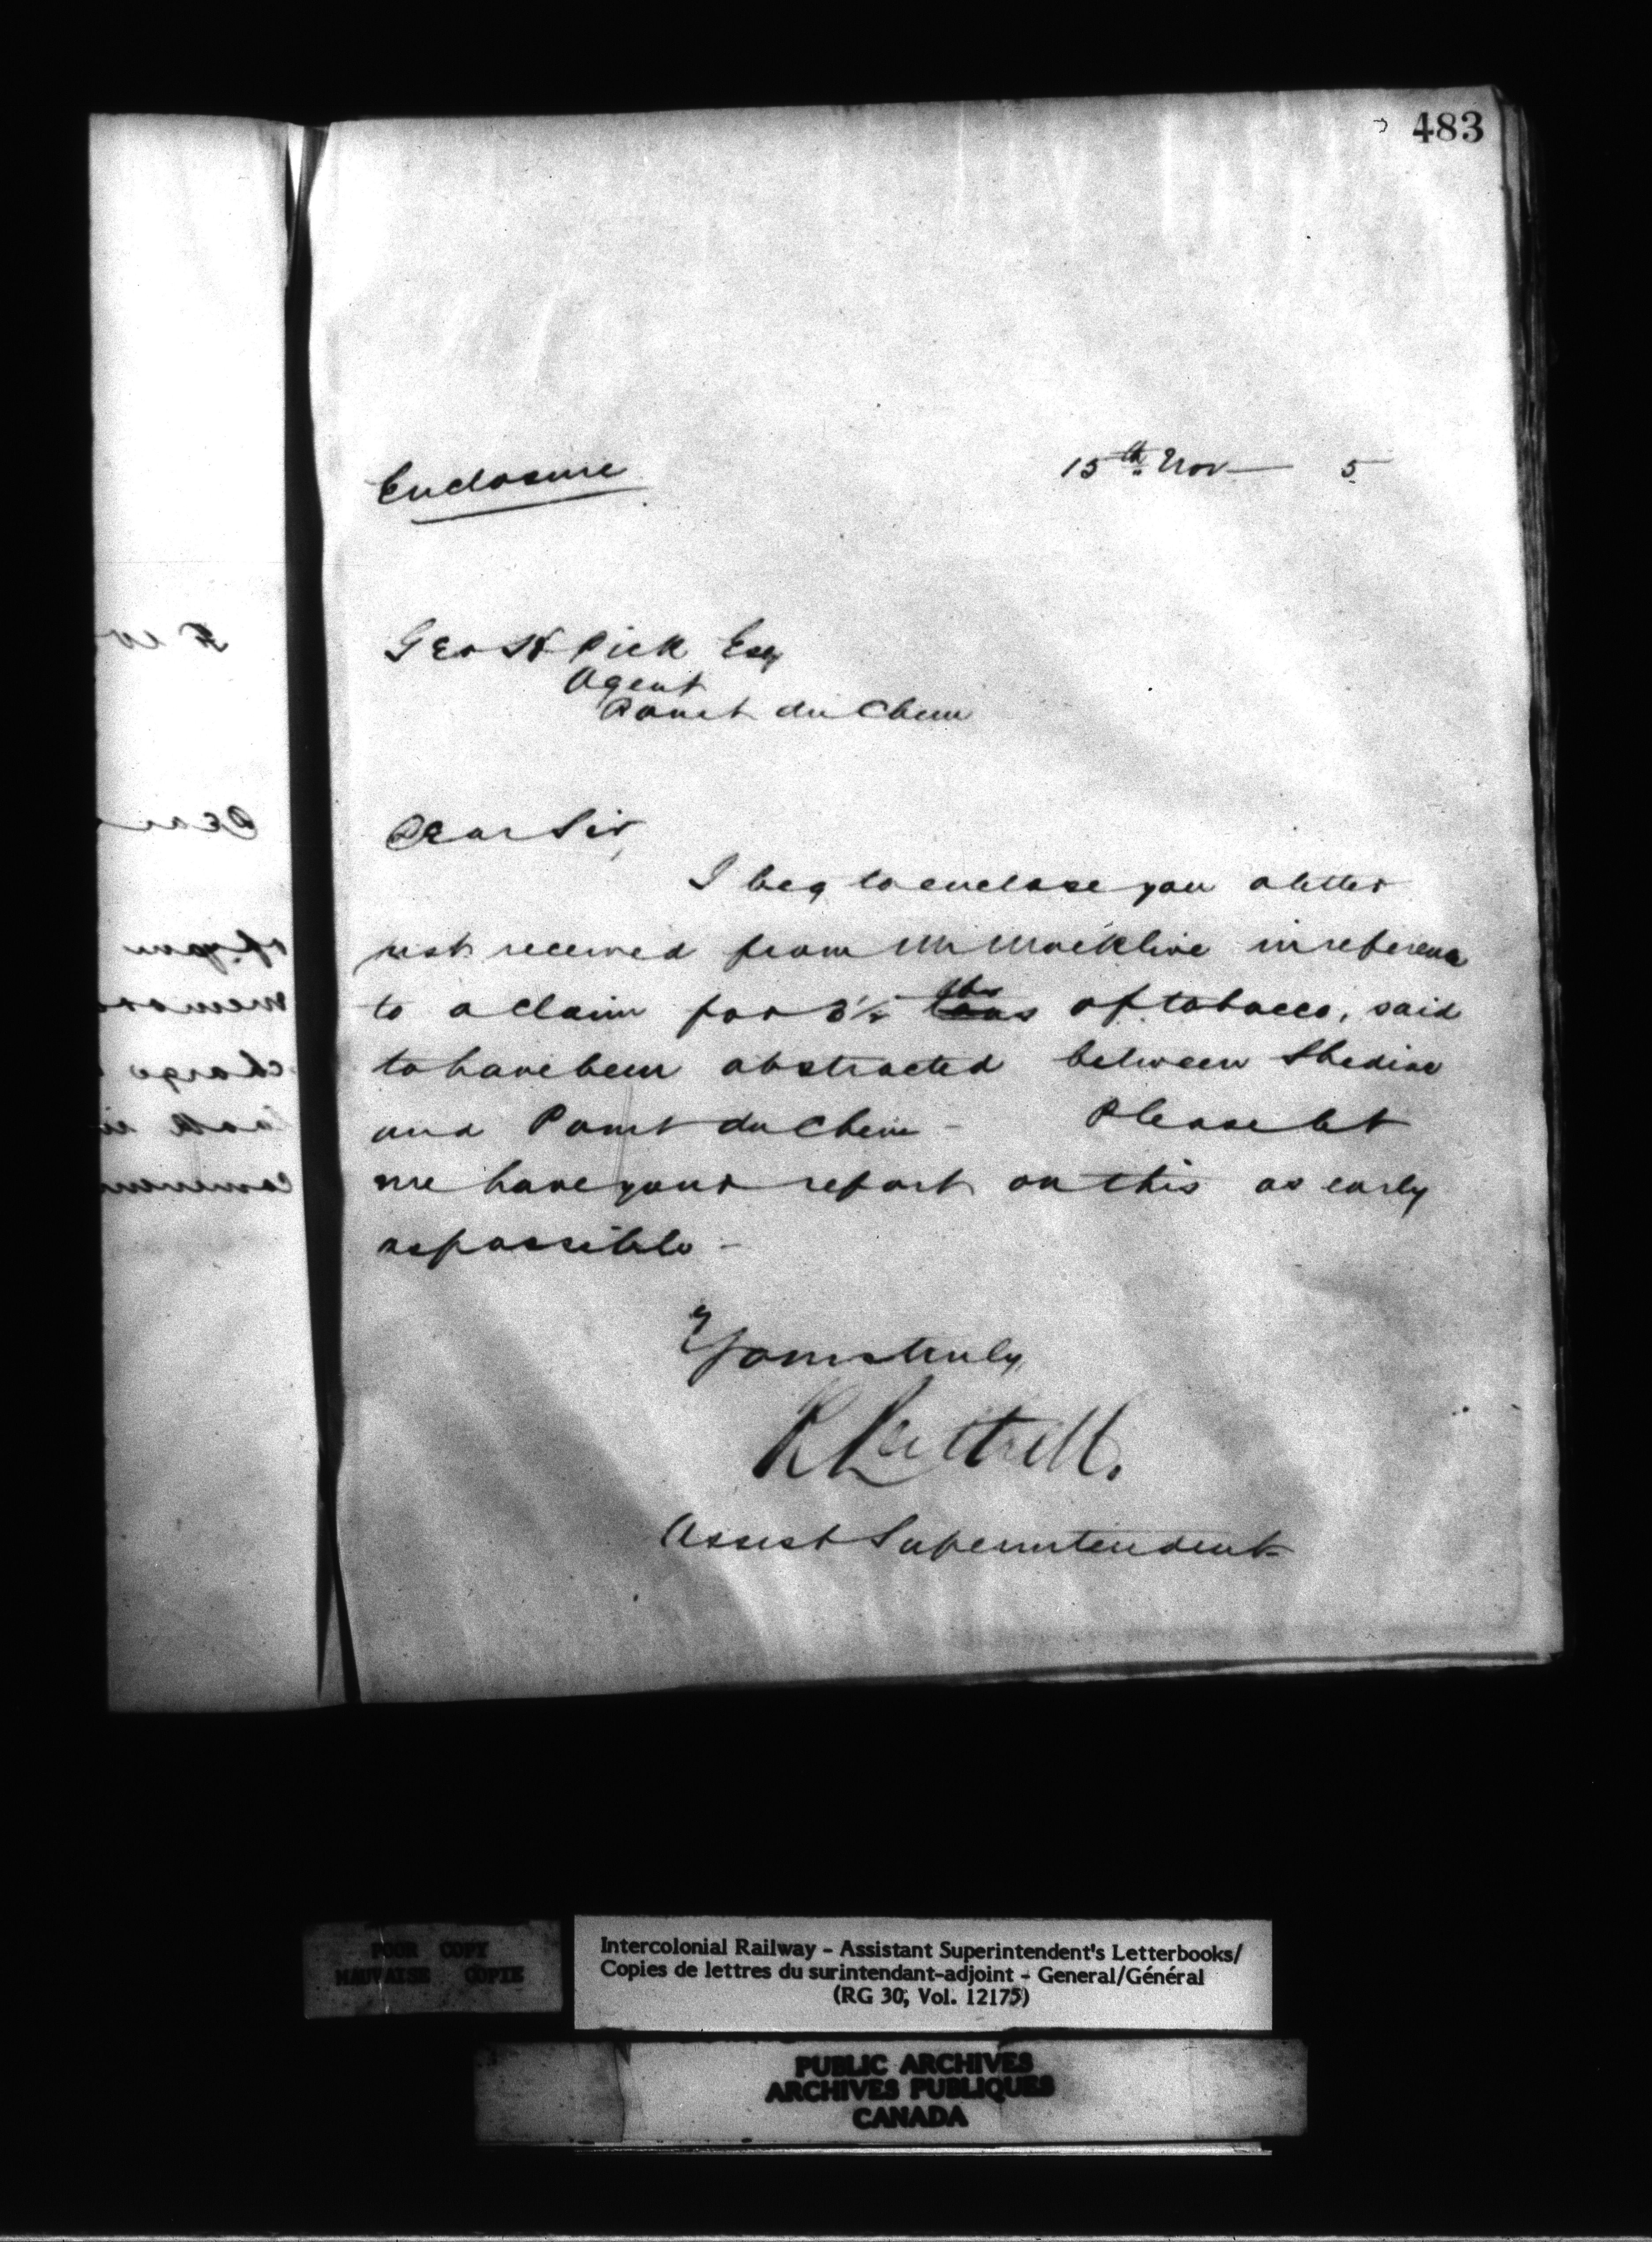 483
Enclosure
15th Nov 5
Geo H Pick Esq
Agent
Point du Chene
Dear Sir,
I beg to enclose you a letter
just received from Mr in reference
to a claim for lbs of tobacco, said
to have been abstracted between Shediac
and Point du Chene - Please let
me have your report on this as early
as possible -
Yours truly
Assist Superintendent
POOR COPY
MAUVAISE COPIE
Intercolonial Railway - Assistant Superintendent's Letterbooks/
Copies de lettres du surintendant-adjoint - General/Général
(RG 30, Vol. 12175)
PUBLIC ARCHIVES
ARCHIVES PUBLIQUES
CANADA